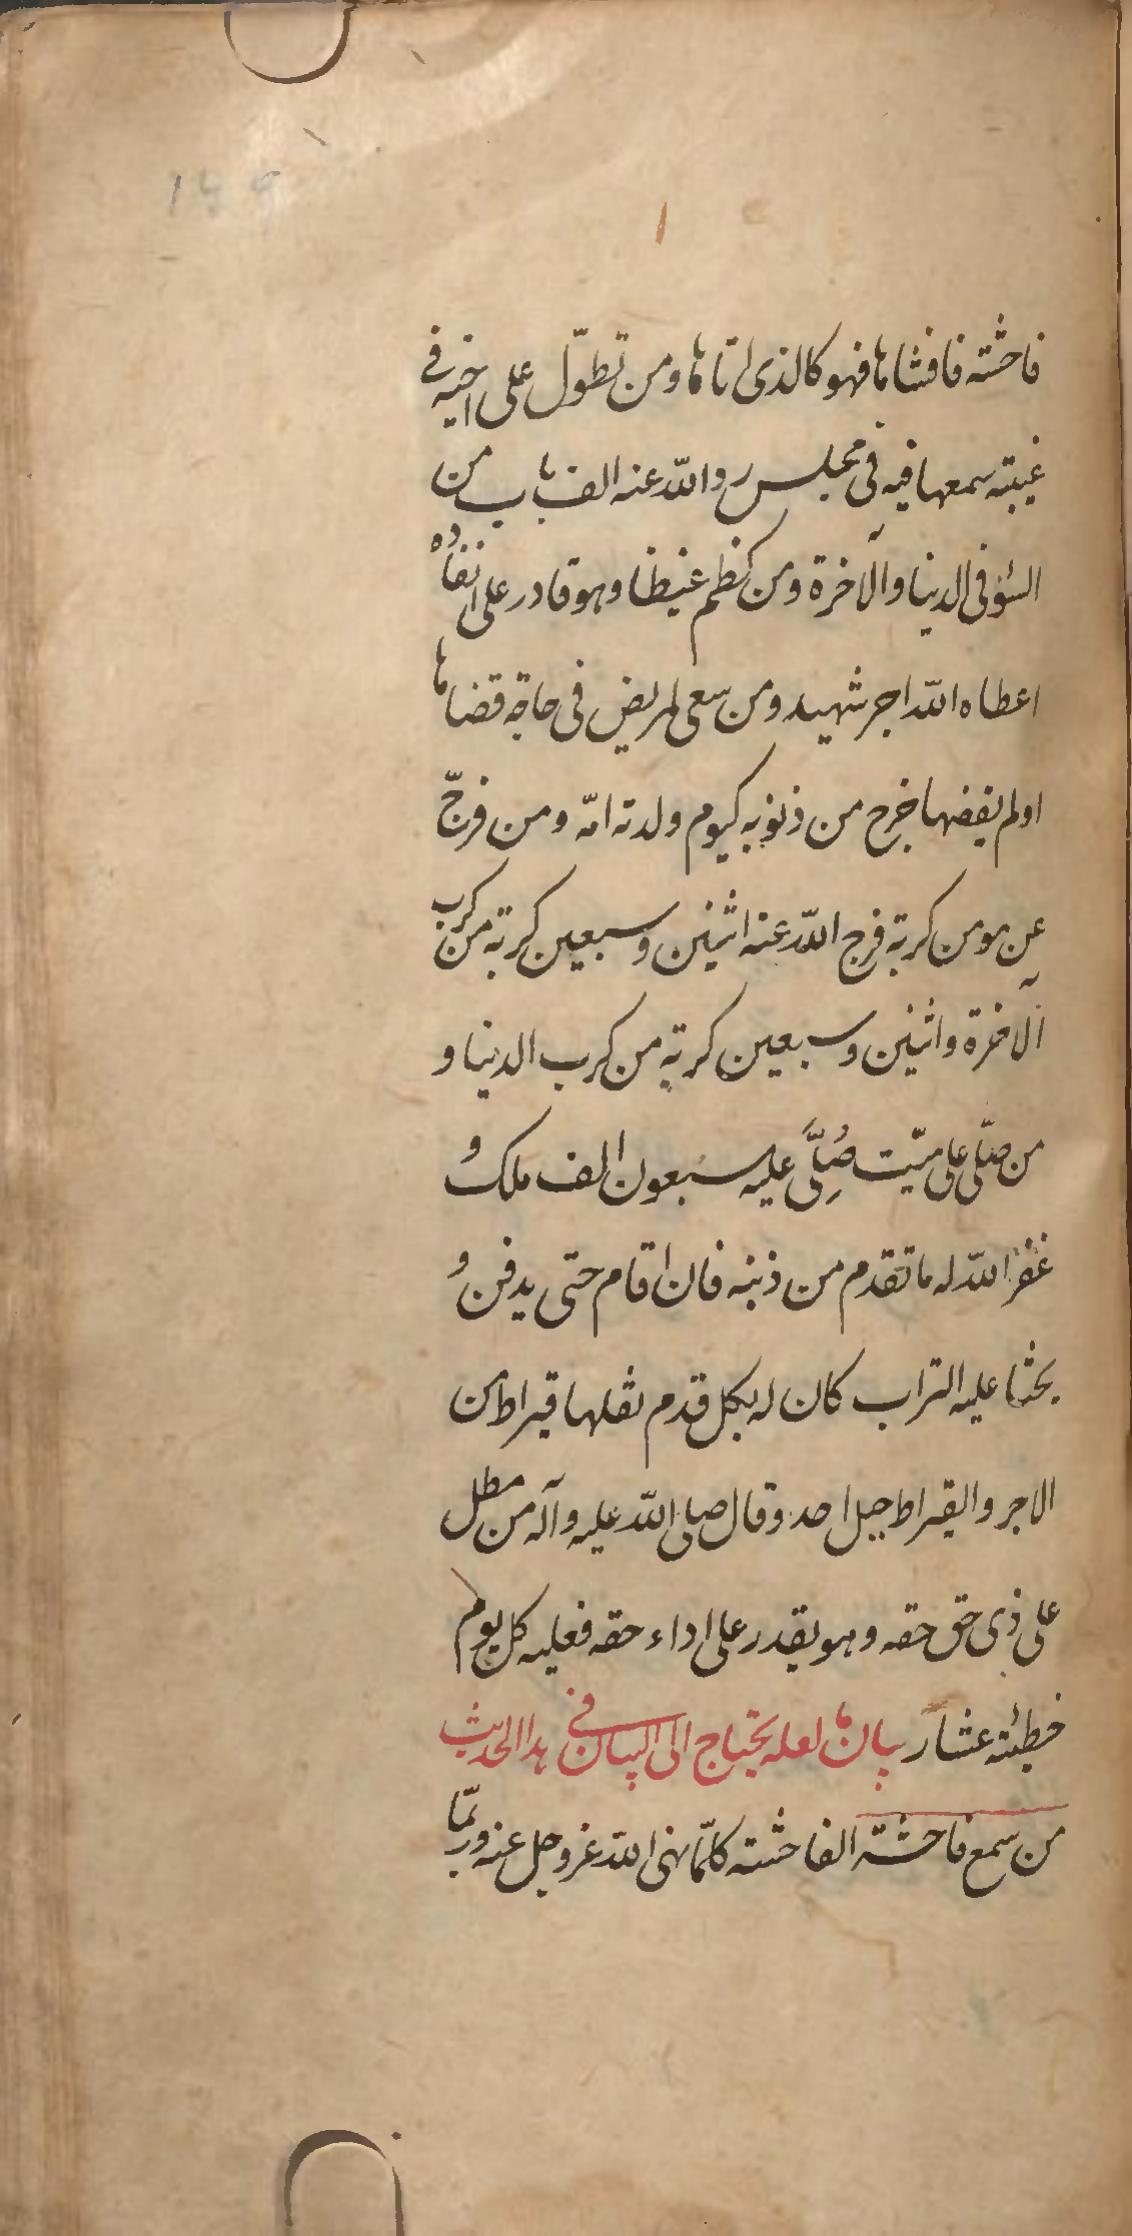 فاحشة فافشاها فهو كالذى اتاها ومن تطوّل على اخيه فى
غيبته سمعها فيه فى مجلس رد الله عنه الف باب من
السّوء فى الدنيا والآخرة ومن كظم غيظا وهو قادر على انفاذه
اعطاه الله اجر شهيد ومن سعى لمريض فى حاجة قضاها
او لم يقضها خرج من ذنوبه كيوم ولدته امّه ومن فرّج
عن مومن كربة فرج الله عنه اثنين وسبعين كربة من كرب
الآخرة واثنين وسبعين كربة من كرب الدنيا و
من صلّى على ميّت صُلِّىَ عليه سبعون الف ملك و
غفر الله له ما تقدم من ذنبه فان اقام حتى يدفن و
يحثا عليه التراب كان له بكل قدم نقلها قيراط من
الاجر والقيراط جبل احد وقال صلى الله عليه وآله من مطل
على ذى حق حقه وهو يقدر على اداء حقه فعليه كل يوم
خطيئة عشار بيان ما لعله يحتاج الى البيان فى هذا الحديث
من سمع فاحشة الفاحشة كلّما نهى الله عز وجل عنه وربّما